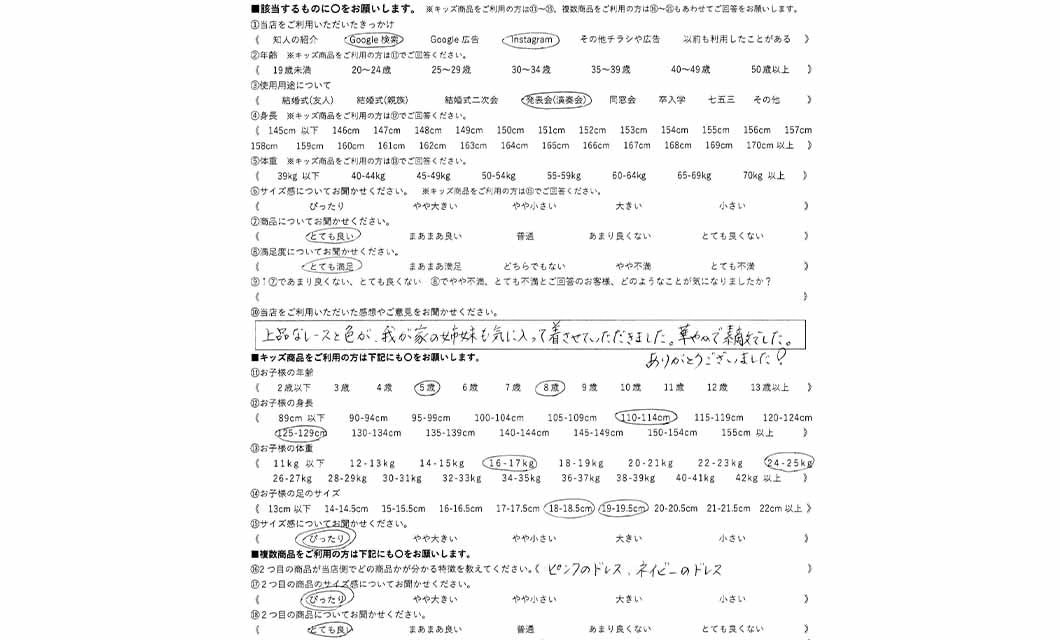 ■該当するものに〇をお願いします。 ※キッズ商品をご利用の方は⑪～⑮、複数商品をご利用の方は⑯～⑳もあわせてご回答をお願いします。
①当店をご利用いただいたきっかけ
《 知人の紹介 Google 検索 Google 広告 Instagram その他チラシや広告 以前も利用したことがある 》
②年齢 ※キッズ商品をご利用の方は⑪でご回答ください。
《 19歳未満 20～24歳 25～29歳 30～34歳 35～39歳 40～49歳 50歳以上 》
③使用用途について
《 結婚式(友人) 結婚式(親族) 結婚式二次会 発表会(演奏会) 同窓会 卒入学 七五三 その他 》
④身長 ※キッズ商品をご利用の方は⑫でご回答ください。
《 145cm 以下 146cm 147cm 148cm 149cm 150cm 151cm 152cm 153cm 154cm 155cm 156cm 157cm
158cm 159cm 160cm 161cm 162cm 163cm 164cm 165cm 166cm 167cm 168cm 169cm 170cm 以上 》
⑤体重 ※キッズ商品をご利用の方は⑬でご回答ください。
《 39kg 以下 40-44kg 45-49kg 50-54kg 55-59kg 60-64kg 65-69kg 70kg 以上 》
⑥サイズ感についてお聞かせください。 ※キッズ商品をご利用の方は⑮でご回答ください。
《 ぴったり やや大きい やや小さい 大きい 小さい 》
⑦商品についてお聞かせください。
《 とても良い まあまあ良い 普通 あまり良くない とても良くない 》
⑧満足度についてお聞かせください。
《 とても満足 まあまあ満足 どちらでもない やや不満 とても不満 》
⑨↑⑦であまり良くない、とても良くない ⑧でやや不満、とても不満とご回答のお客様、どのようなことが気になりましたか？
《 》
⑩当店をご利用いただいた感想やご意見をお聞かせください。
上品なレースと色が、我が家の姉妹も気に入って着させていただきました。華やかで素敵でした。
ありがとうございました！
■キッズ商品をご利用の方は下記にも〇をお願いします。
⑪お子様の年齢
《 2歳以下 3歳 4歳 5歳 6歳 7歳 8歳 9歳 10歳 11歳 12歳 13歳以上 》
⑫お子様の身長
《 89cm 以下 90-94cm 95-99cm 100-104cm 105-109cm 110-114cm 115-119cm 120-124cm
125-129cm 130-134cm 135-139cm 140-144cm 145-149cm 150-154cm 155cm 以上 》
⑬お子様の体重
《 11kg 以下 12-13kg 14-15kg 16-17kg 18-19kg 20-21kg 22-23kg 24-25kg
26-27kg 28-29kg 30-31kg 32-33kg 34-35kg 36-37kg 38-39kg 40-41kg 42kg 以上 》
⑭お子様の足のサイズ
《 13cm 以下 14-14.5cm 15-15.5cm 16-16.5cm 17-17.5cm 18-18.5cm 19-19.5cm 20-20.5cm 21-21.5cm 22cm 以上 》
⑮サイズ感についてお聞かせください。
《 ぴったり やや大きい やや小さい 大きい 小さい 》
■複数商品をご利用の方は下記にも〇をお願いします。
⑯2つ目の商品が当店側でどの商品かが分かる特徴を教えてください。《 ピンクのドレス、ネイビーのドレス 》
⑰2つ目の商品のサイズ感についてお聞かせください。
《 ぴったり やや大きい やや小さい 大きい 小さい 》
⑱2つ目の商品についてお聞かせください。
《 とても良い まあまあ良い 普通 あまり良くない とても良くない 》